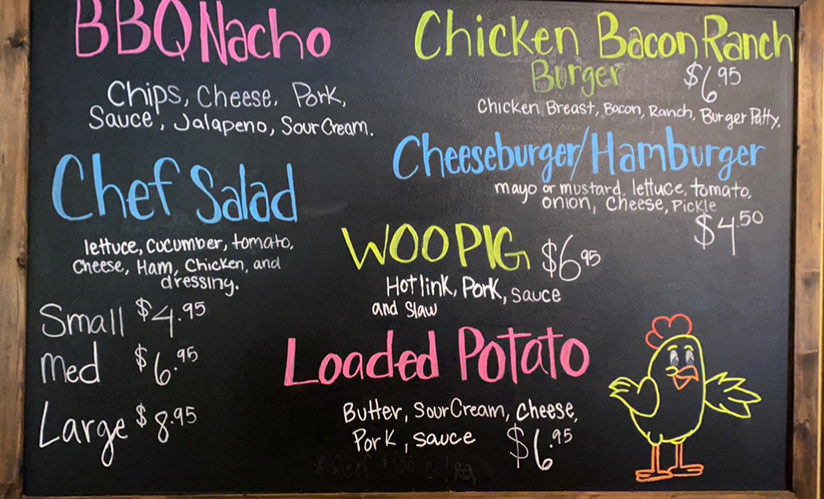 BBQ Nacho
Chips, Cheese, Pork,
Sauce, Jalapeno, Sour Cream.
Chef Salad
lettuce, cucumber, tomato,
Cheese, Ham, Chicken, and
dressing.
Small $4.95
Med $6.95
Large $8.95
Chicken Bacon Ranch
Burger $6.95
Chicken Breast, Bacon, Ranch, Burger Patty.
Cheeseburger/Hamburger
mayo or mustard, lettuce, tomato,
onion, Cheese, Pickle
$4.50
WOO PIG $6.95
Hot link, Pork, sauce
and Slaw
Loaded Potato
Butter, Sour Cream, cheese,
Pork, sauce $6.95